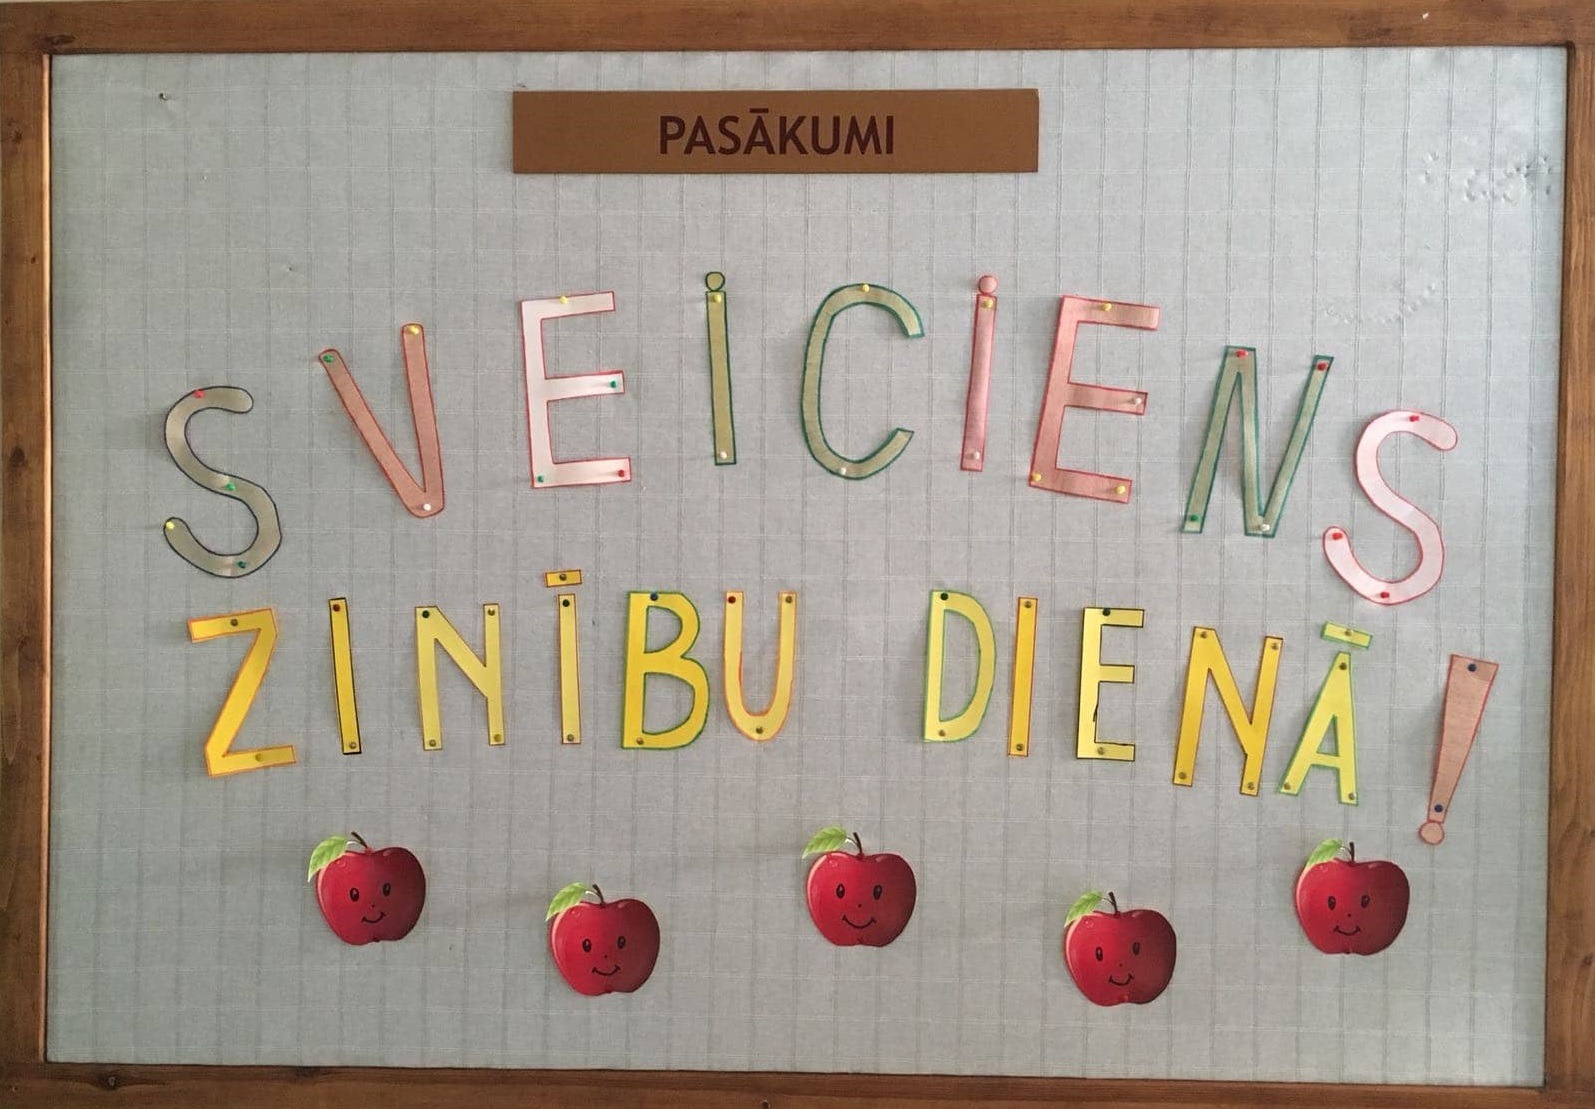 PASĀKUMI
SVEICIENS
ZINĪBU DIENĀ!